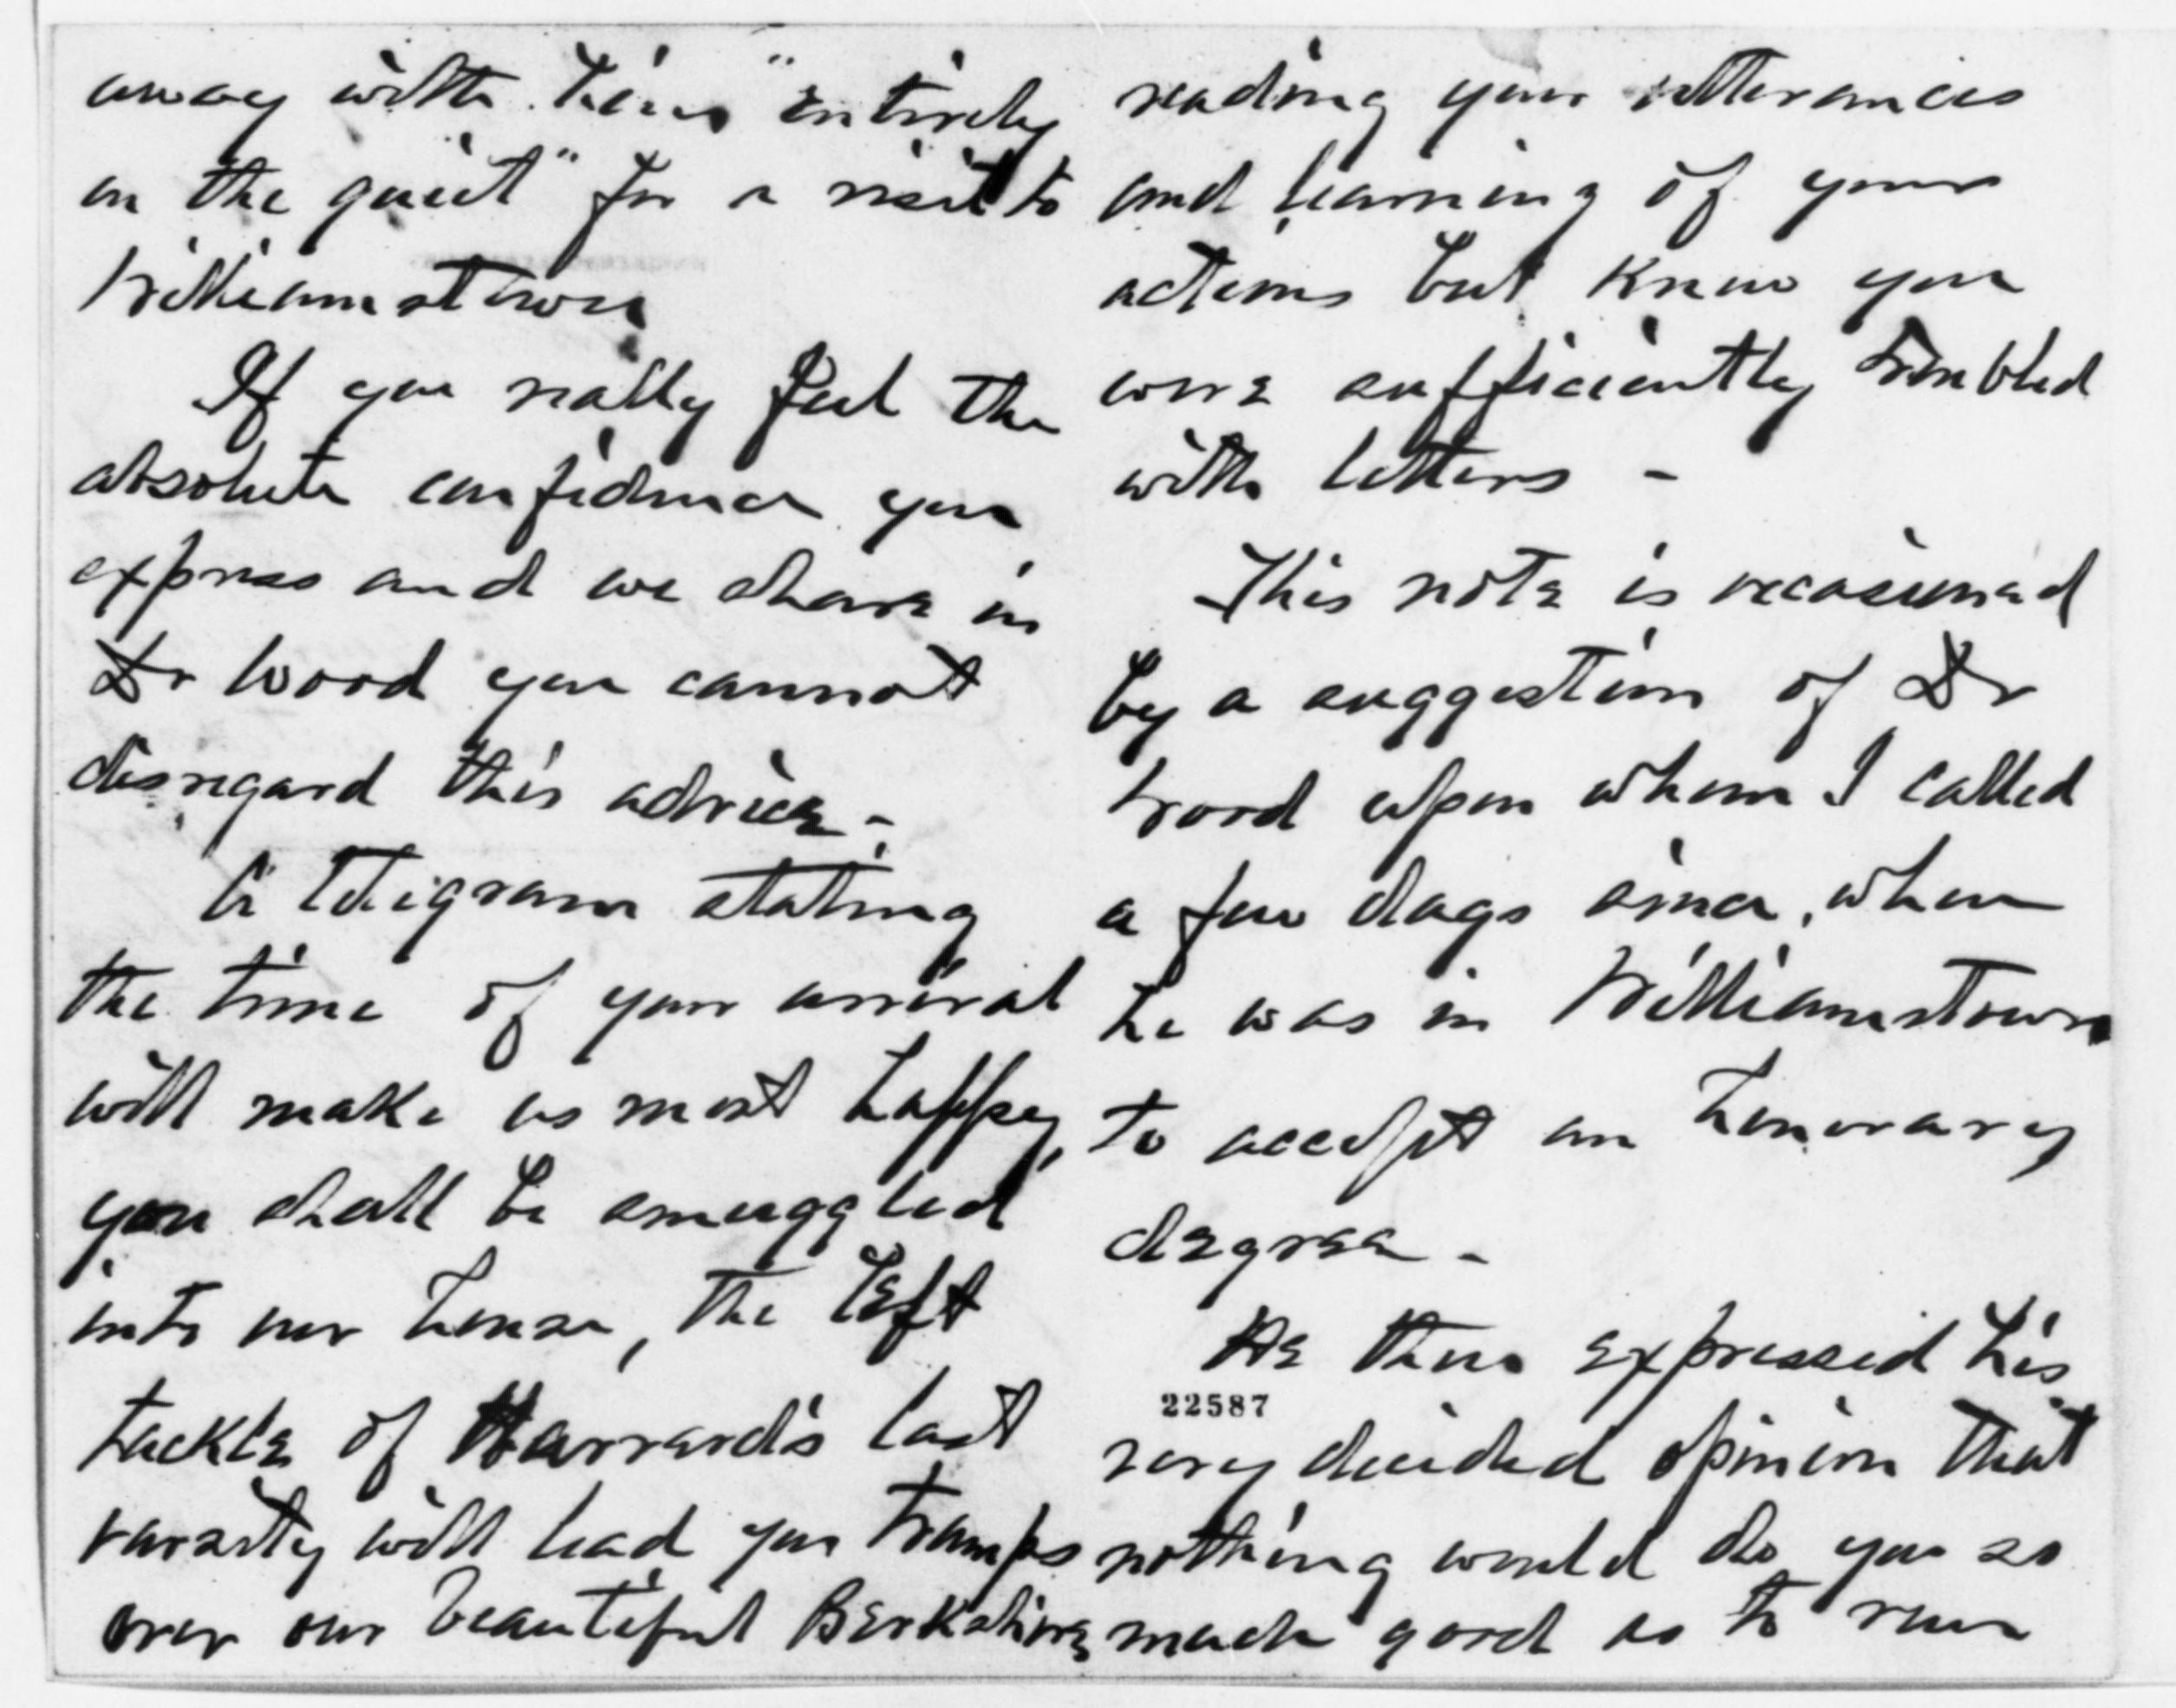 away with him "entirely
on the quiet" for a visit to
Williamstown
If you really feel the
absolute confidence you
express and we share in
Dr Wood you cannot
disregard this advice -
A telegram stating
the time of your arrival
will make us most happy,
you shall be smuggled
into our house, the left
tackle of Harvard's last
varsity will lead you tramps
over our beautiful Berkshires
reading your utterances
and learning of your
actions but knew you
were sufficiently troubled
with letters -
This note is occasioned
by a suggestion of Dr
Wood upon whom I called
a few days since, when
he was in Williamstown
to accept an honorary
degree -
He then expressed his
22587
very decided opinion that
nothing would do you so
much good as to run